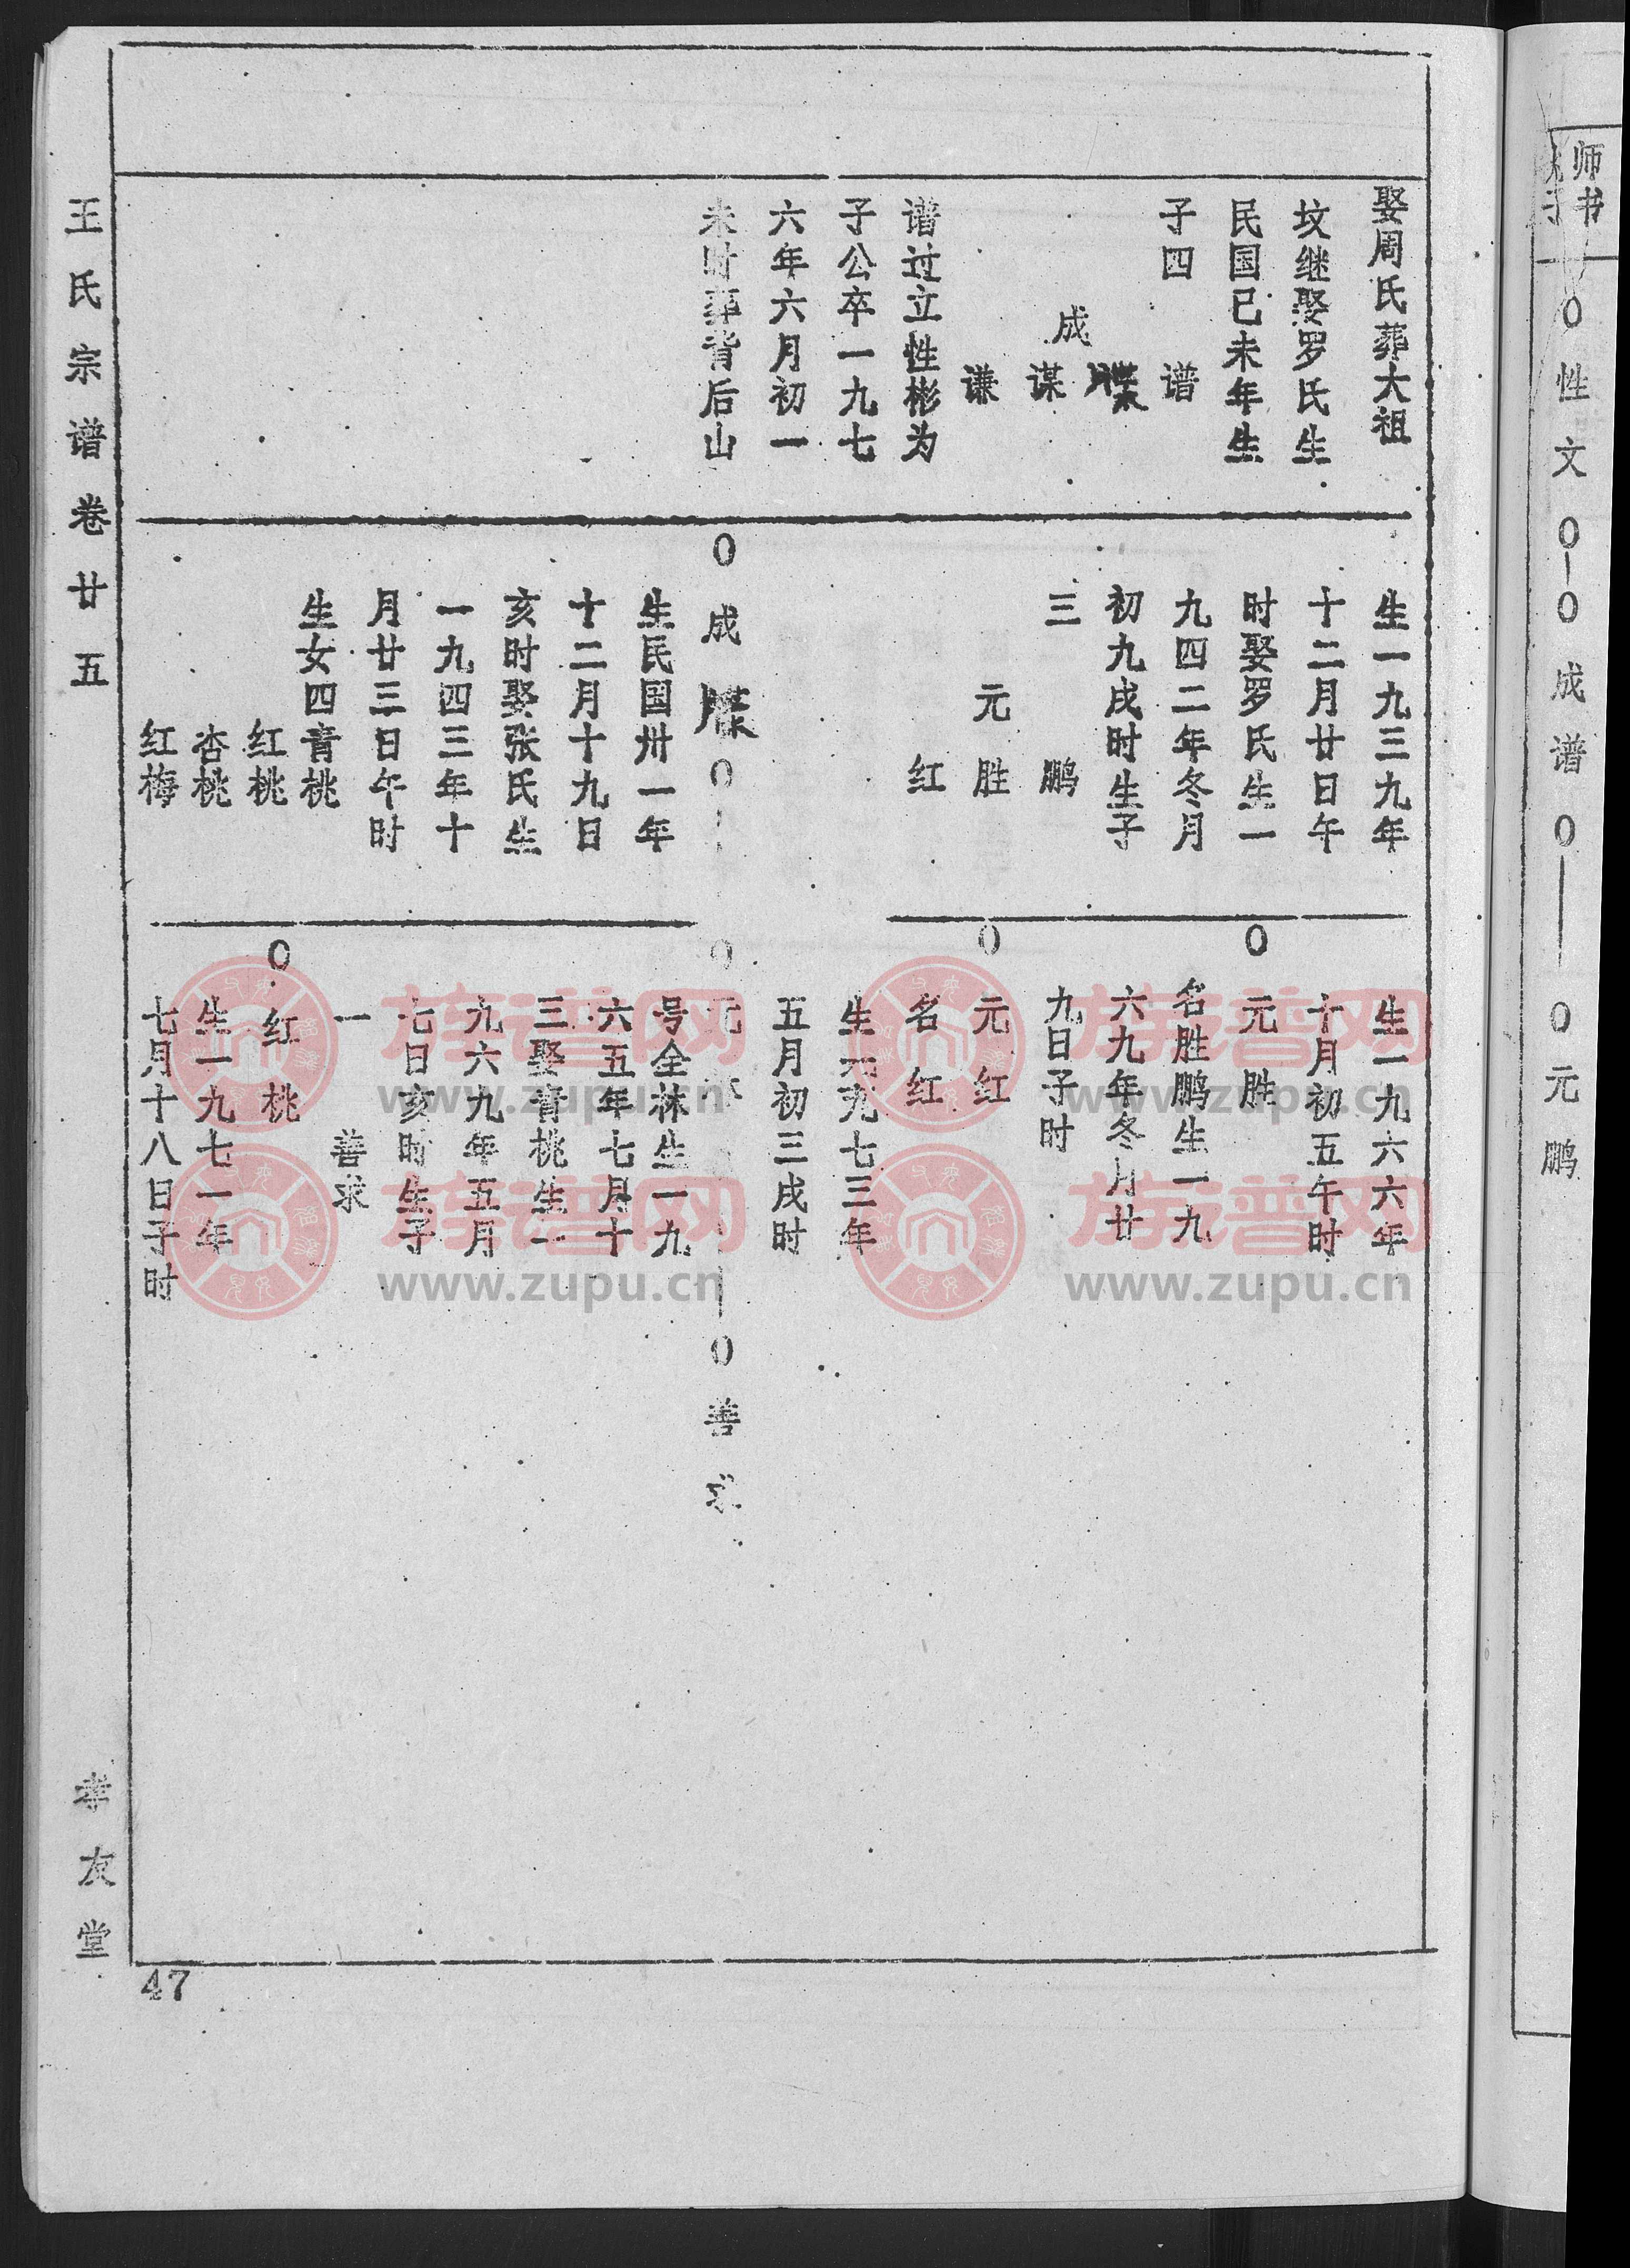 王氏宗谱卷廿五
孝友堂
47
师
书
0性文0-0成谱0——0元鹏
娶周氏葬大祖
坟继娶罗氏生
民国已未年生
子四
谱
成
谋
谦
谱过立性彬为
子公卒一九七
六年六月初一
未时葬背后山
生一九三九年
十二月廿日午
时娶罗氏生一
九四二年冬月
初九戌时生子
三
鹏
元胜
红
0成
0
生民国卅一年
十二月十九日
亥时娶张氏生
一九四三年十
月廿三日午时
生女四青桃
红桃
杏桃
红梅
生一九六六年
十月初五午时
0元胜
名胜鹏生一九
六九年冬月廿
九日子时
0元红
名红
生一九七三年
五月初三戌时
0元
0善求
号全林生一九
六五年七月十
三娶青桃生一
九六九年五月
七日亥时生子
一
善求
0红桃
生一九七一年
七月十八日子时
族谱网
www.zupu.cn
族谱网
www.zupu.cn
族谱网
www.zupu.cn
族谱网
www.zupu.cn